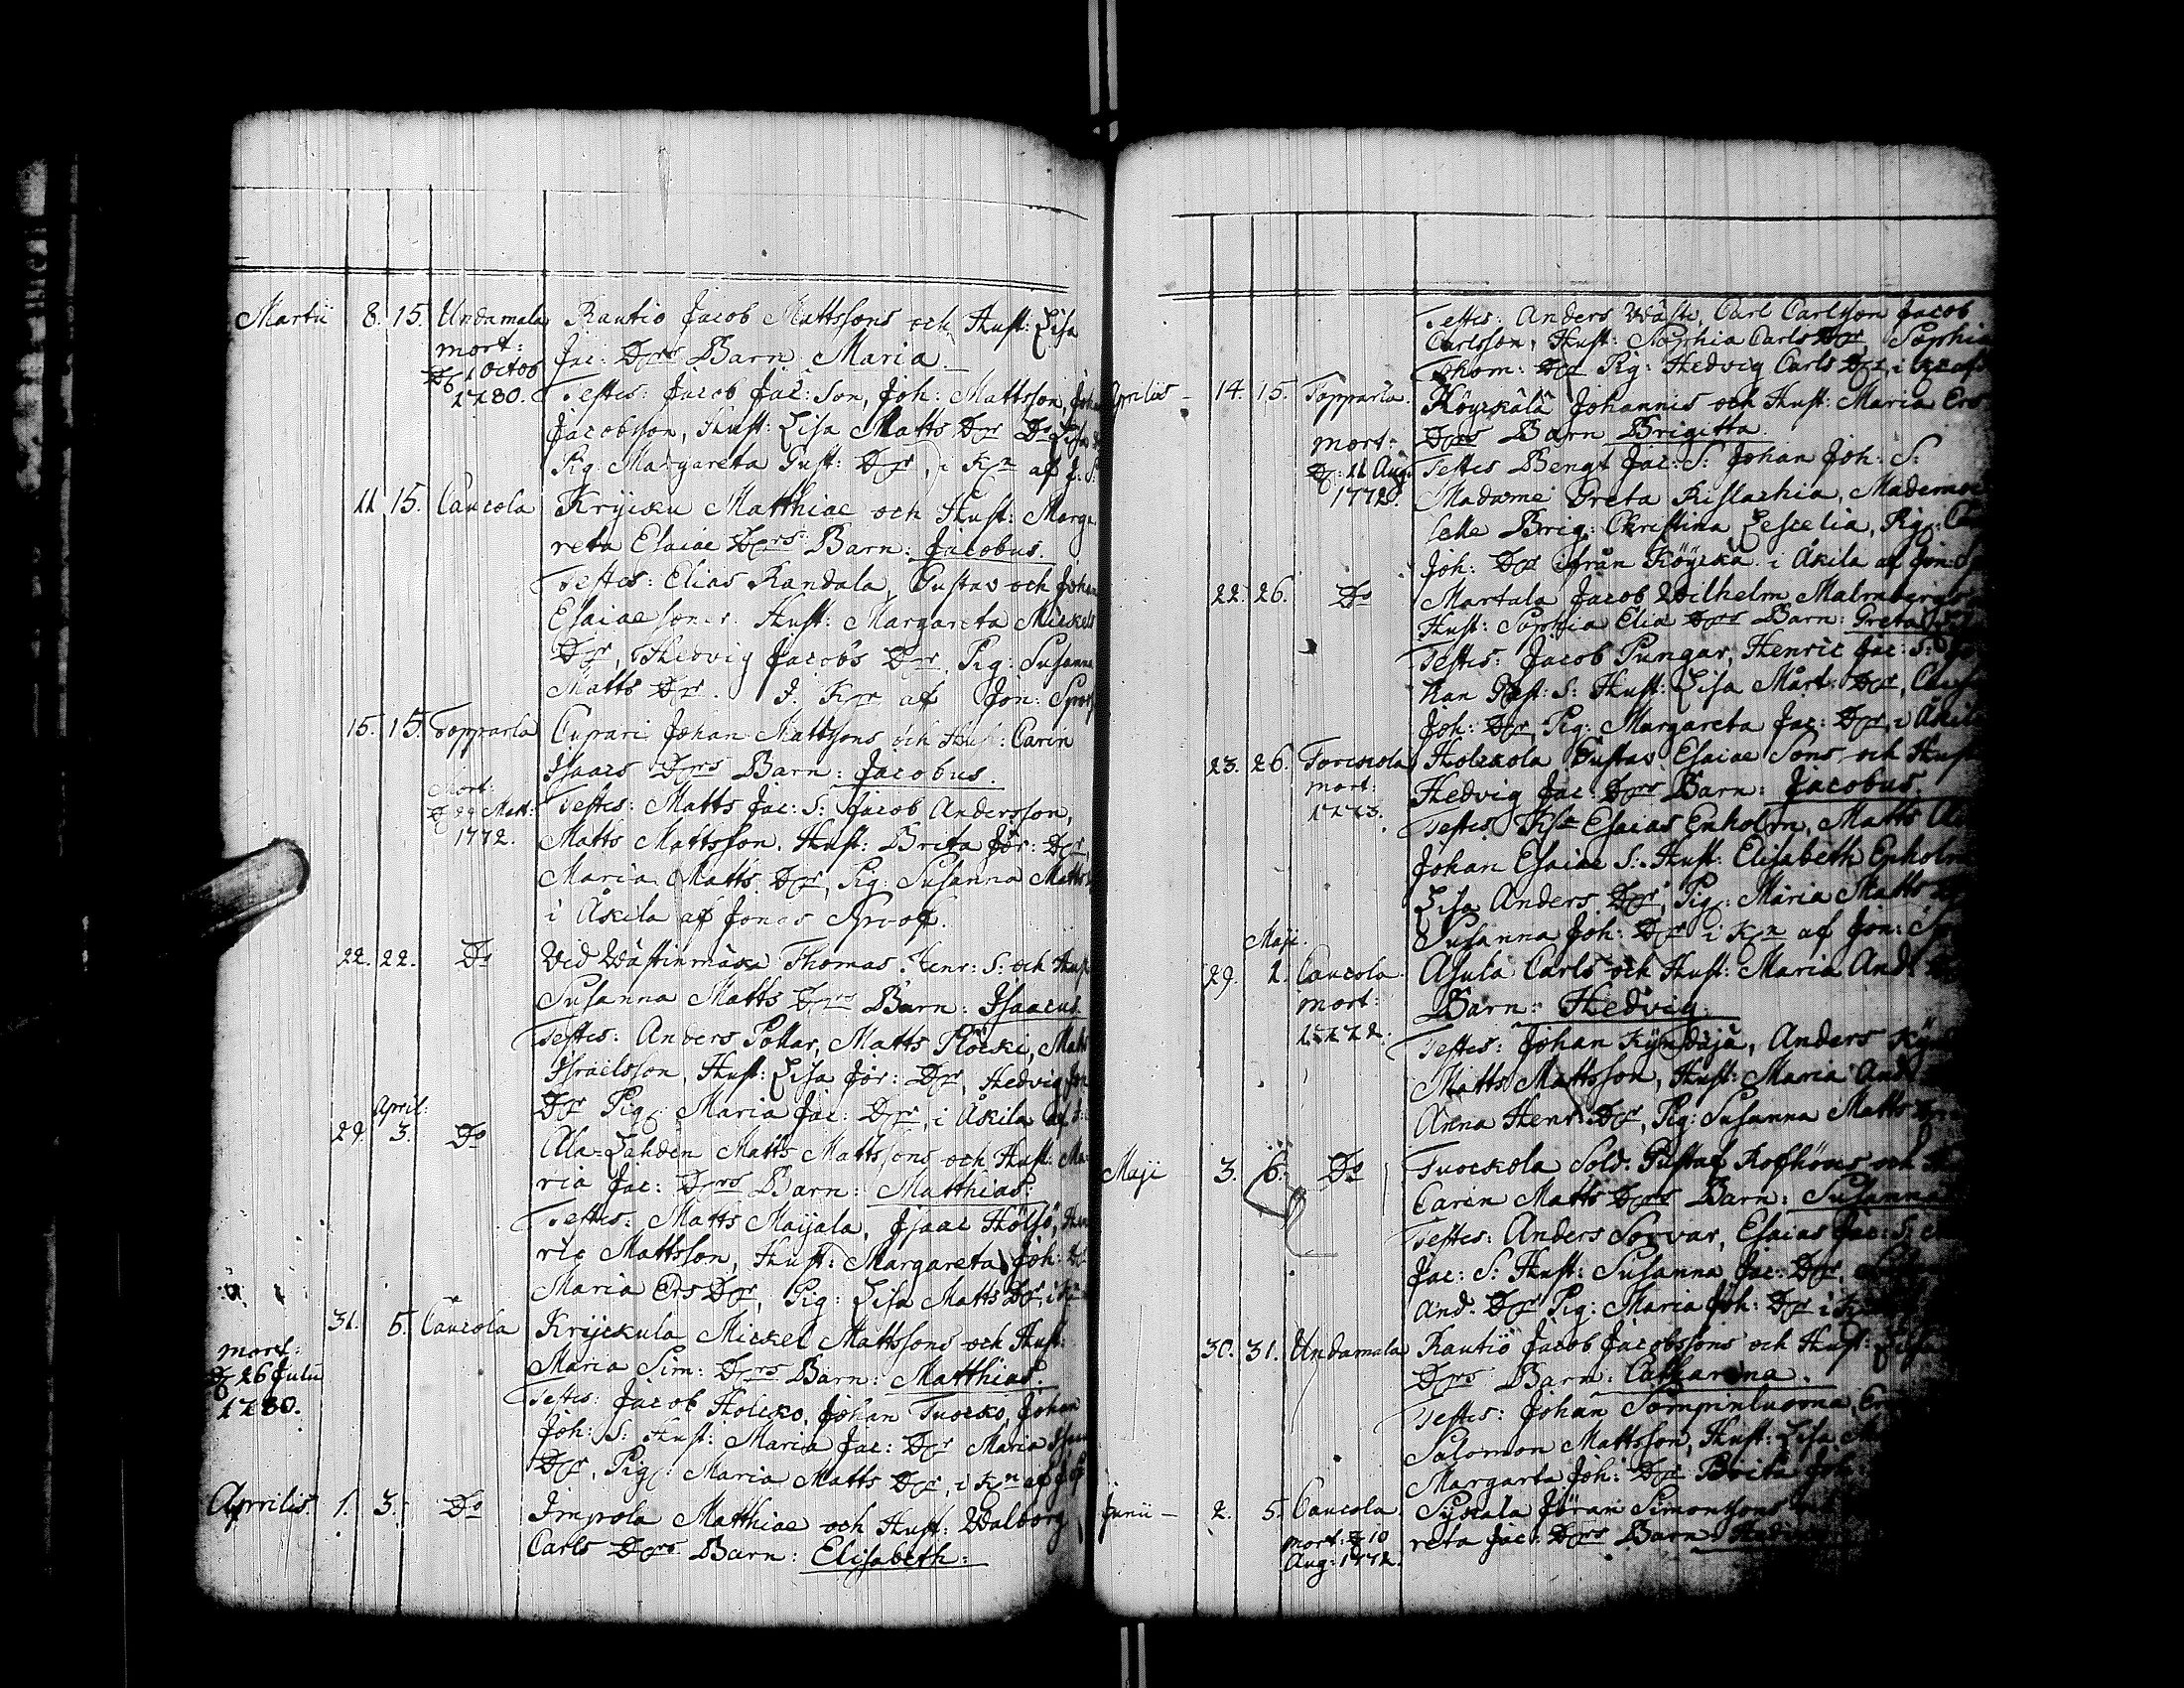 Martii 8. 15. Undamala Rautio Jacob Mattssons och Hust: Lisa
mort: Jac: Dotrs Barn: Maria.
D. 1 Octob
1780. Testes: Jacob Jac: Son, Joh: Mattsson, Joh
Jacobsson, Hust: Lisa Matts Dotr Do Lisa
Pig: Margareta Gust: Dotr, i Kn af J: S:
11 15. Caucola Krycku Matthiae och Hust: Marga
reta Esaiae Dotrs Barn: Jacobus.
Testes: Elias Kandala, Gustav och Johan
Esaiae söner. Hust: Margareta Mickels
Dotr, Hedvig Jacobs Dotr Pig: Susanna
Matts Dotr. I. Kn af Jon: Sproof
15. 15. Topparla Cupari Johan Mattsons och Hust: Carin
Isaacs Dotrs Barn: Jacobus.
Mort:
D 29 Mart: Testes: Matts Jac: S: Jacob Andersson,
1772. Matts Mattsson. Hust: Brita Jör: Dotr,
Maria Matts Dotr, Pig: Susanna Matts
i Åkila af Jonas Sproof.
22. 22. Do Vid Wästinmäki Thomas Henr: S: och Hust:
Susanna Matts Dotrs Barn: Isaacus.
Testes: Anders Pollar, Matts Plöcki, Matts
Israelsson, Hust: Lisa Jör: Dotr, Hedvig Jon
Dotr Pig: Maria Jac: Dotr, i Åkila af J:
April:
29. 3. Do Ala-Lahden Matts Mattssons och Hust: Ma
ria Jac: Dotrs Barn: Matthias:
Testes: Matts Maijala, Isaac Hölsö, Hen
ric Mattsson, Hust: Margareta Joh: D
Maria Ers Dotr, Pig: Lisa Matts Dr, i Kn
31. 5. Caucola Krijckula Mickel Mattssons och Hust:
mort: Maria Sim: Dotrs Barn: Matthias.
D 26 Julii Testes: Jacob Holcko, Johan Tuocko, Johan
1780. Joh: S: Hust: Maria Jac: Dotr Maria Isaac
Dotr, Pig: Maria Matts Dotr, i Kn af J: Sp
Aprilis. 1. 3. Do Impola Matthiae och Hust: Walborg
Carls Dotrs Barn: Elisabeth:
Testes: Anders Wäste, Carl Carlsson Jacob
Carlsson, Hust: Sophia Carls Dotr, Sophia
Thom: Dotr Pig: Hedvig Carls Dotr, i Kn af S
Aprilis - 14. 15. Topparla. Köyckälä Johannis och Hust: Maria Ers
mort: Dotrs Barn Brigitta.
D: 11 Aug. Testes Bengt Jac: S: Johan Joh: S:
1772. Madame Greta Rislachia, Mademoi
selle Brig: Christina Lescelia, Pig: Ca
Joh: Dotr ifrån Köycka i Åkila af Jon: S
22. 26. Do Martala Jacob Wilhelm Malmbergs
Hust: Sophia Elia Dotrs Barn: Greta
Testes: Jacob Pungar, Henric Jac: S: Jo
han Gust: S: Hust: Lisa Mårt: Dotr,
Joh: Dotr, Pig: Margareta Jac: Dotr, i Åkila
23. 26. Torckola Holckola Gustav Esaiae Sons och Hust
mort: Hedvig Jac: Dotrs Barn: Jacobus.
1773. Testes Esaias Enholm, Matts
Johan Esaiae S: Hust: Elisabeth Enholm
Lisa Anders Dotr, Pig: Maria Matts
Susanna Joh: Dotr i Kn af Jon: S
Maji.
29. 1. Caucola Asula Carls och Hust: Maria And:
mort: Barn: Hedvig.
1772. Testes: Johan Kyndäjä, Anders Ky
Matts Mattsson, Hust: Maria And
Anna Henr: Dotr, Pig: Susanna Matts
Maji 3. 6. Do Tuockola Sold: Gustaf Roshövis och
Carin Matts Dotrs Barn: Susanna
Testes: Anders Sorvar, Esaias Jac: S:
Jac: S: Hust: Susanna Jac: Dotr,
And. Dotr Pig: Maria Joh: Dotr i K
30. 31. Undamala Rautiö Jacob Jacobssons och Hust: Lisa
Dotrs Barn: Catharina.
Testes: Johan Sompinluoma,
Salomon Mattsson, Hust: Lisa
Margarta Joh: Dotr Brita Joh
Junii - 2. 5. Caucola Syckala Jöran Simonssons
mort: D 10 reta Jac: Dotrs Barn:
Aug: 1772.